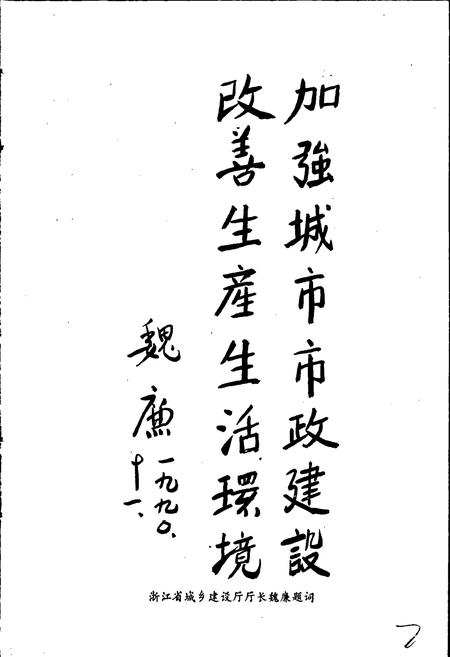 加強城市市政建設
改善生産生活環境
魏廉
一九九〇、
十一、
浙江省城乡建设厅厅长魏廉题词